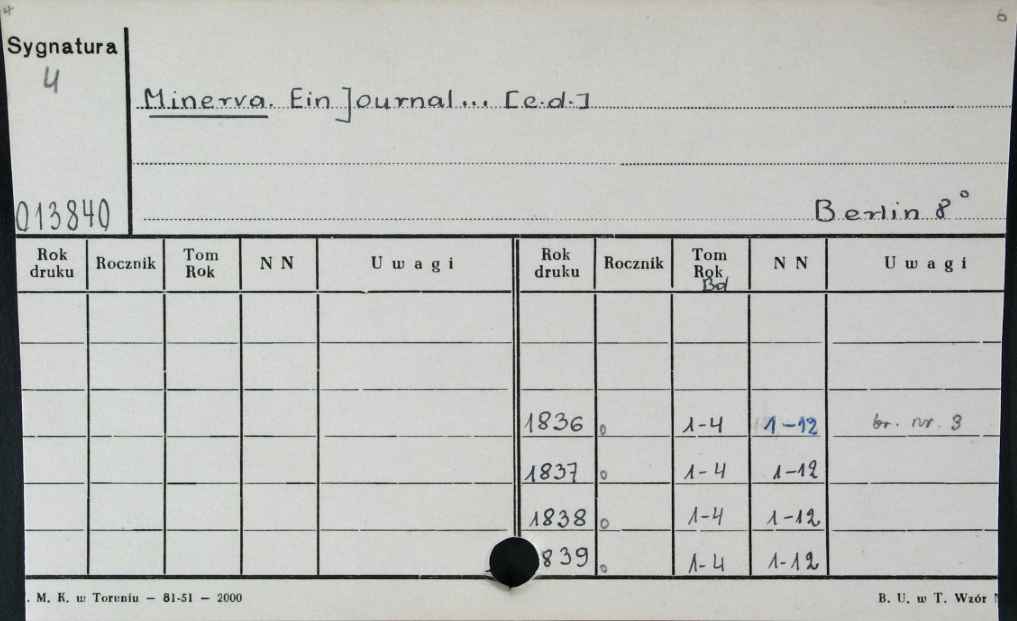 4 6
Sygnatura
4
Minerva. Ein Journal... [c.d.]
013840
Berlin 8°
Rok druku Rocznik Tom Rok N N Uwagi Rok druku Rocznik Tom Rok Bd N N Uwagi
1836 o 1-4 1-12 br. nr. 3
1837 o 1-4 1-12
1838 o 1-4 1-12
839 o 1-4 1-12
. M. K. w Toruniu — 81-51 — 2000
B. U. w T. Wzór